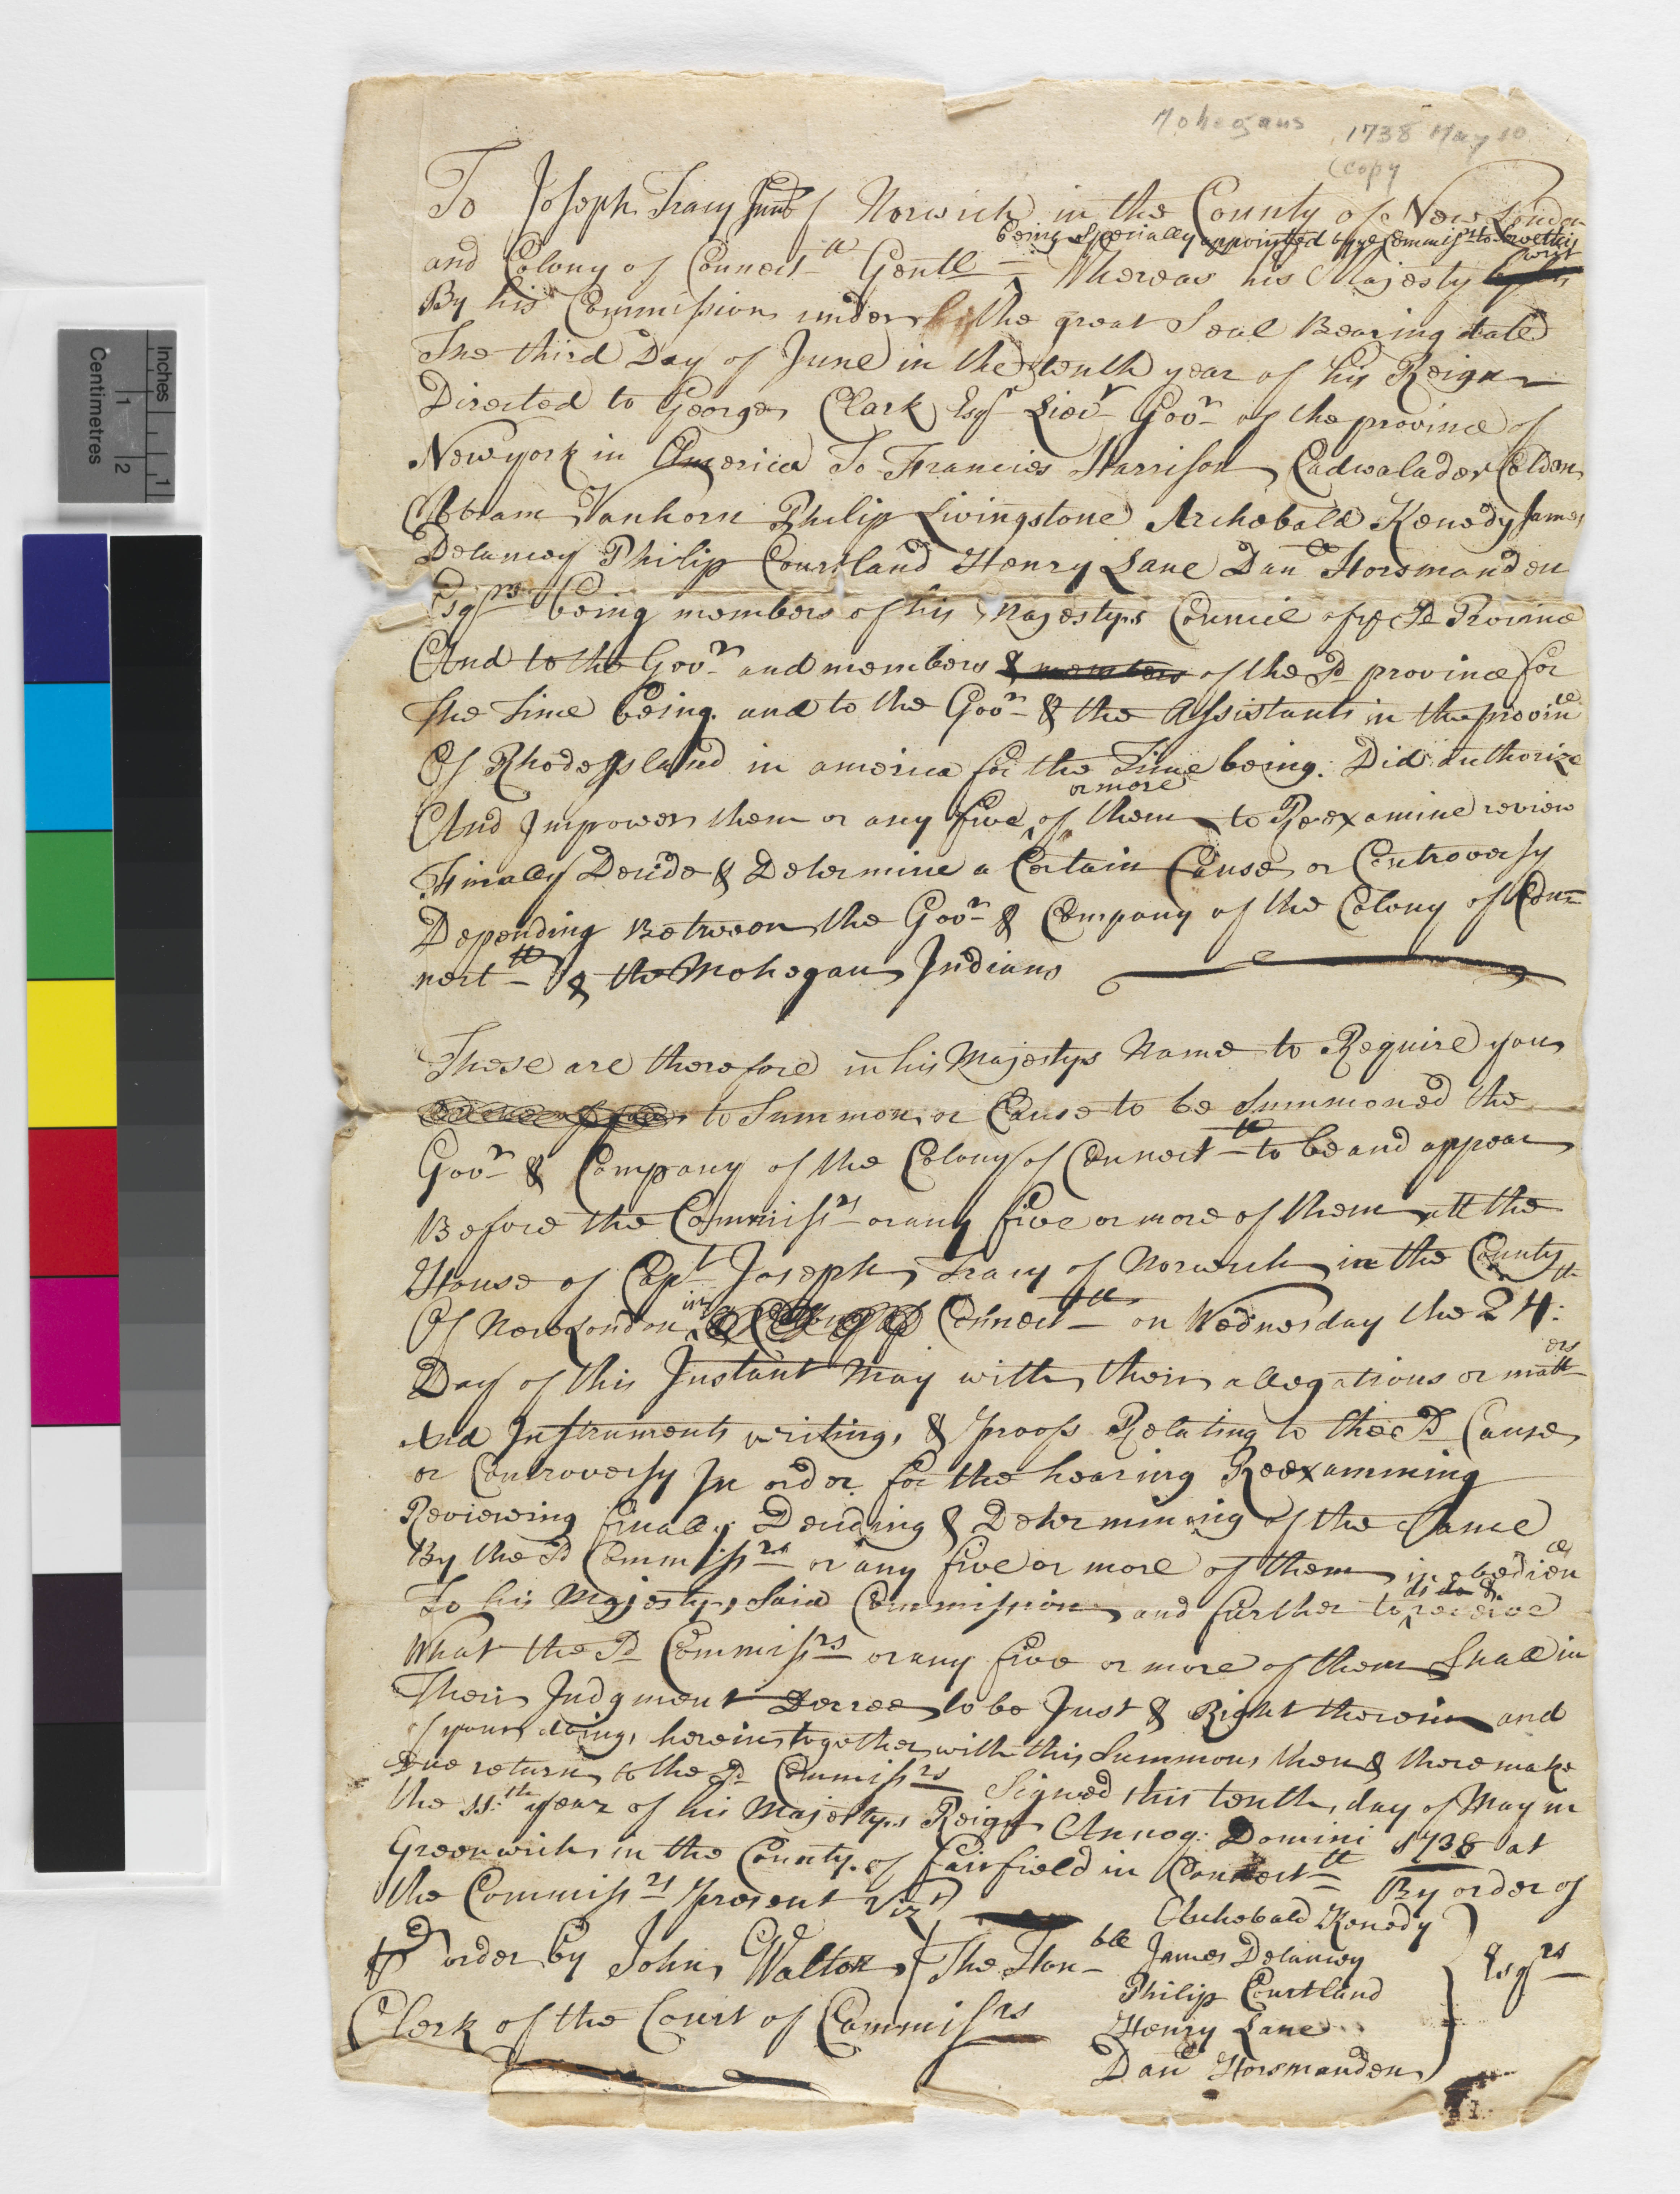 Mohegans 1738 May 10
(copy
To Joseph Tracy Junr of Norwich in the County of New London
being specially appointed by ye Commissrs to serve this writ
and Colony of Connectt Gentll Whereas his Majesty
By his Commission under the great Seal Bearing date
The third Day of June in the tenth year of his Reign
Directed to George Clark Esqr Lieut Govr of the province of
Newyork in America To Francies Harrison Cadwalader Colden
Abram Vanhorn Philip Livingstone Archebald Kenedy James
Delancey Philip Courtland Henry Lane Danll Horsmanden
Esqrs being members of his Majestys Council of ye Sd Province
And to the Govr and members & members of the Sd province for
the Time being. and to the Govr & the Assistants in the province
Of Rhode Island in america for the Time being. Did Authorize
or more
And Impower them or any five of them to Reexamine review
Finally Decide & Determine a Certain Cause or Controversy
Depending Between the Govr & Company of the Colony of Con=
nectt & the Mohegan Indians
These are therefore in his Majestys Name to Require you
to Summon or Cause to be Summoned the
Govr & Company of the Colony of Connectt to be and appear
Before the Commissrs or any five or more of them att the
House of Capt Joseph Tracy of Norwich in the County
Of New London in Connectt on Wednesday the 24th:
Day of this Instant May with their allegations or matters
And Instruments writing, & proofs Relating to the Sd Cause
or Controversy In order for the hearing Reexamining
Reviewing finally Deciding & Determining of the Same
By the Sd Commissrs or any five or more of them in obedience
To his Majestys Said Commission and further to do & receive
What the Sd Commissrs or any five or more of them Shall in
Their Judgment Decree to be Just & Right therein and
of your doings herein together with this Summons then & there make
Due return to the Sd Commissrs Signed this tenth day of May in
the 11th year of his Majestys Reign Annoq: Domini 1738 at
Greenwich in the County of Fairfield in Connectt By order of
the Commissrs present Vizt
Archebald Kenedy
order by John Walton The Honble James Delancey Esqrs
Philip Courtland
Clerk of the Court of Commissrs Henry Lane
Danll Horsmanden
Inches
1
Centimetres
1 2